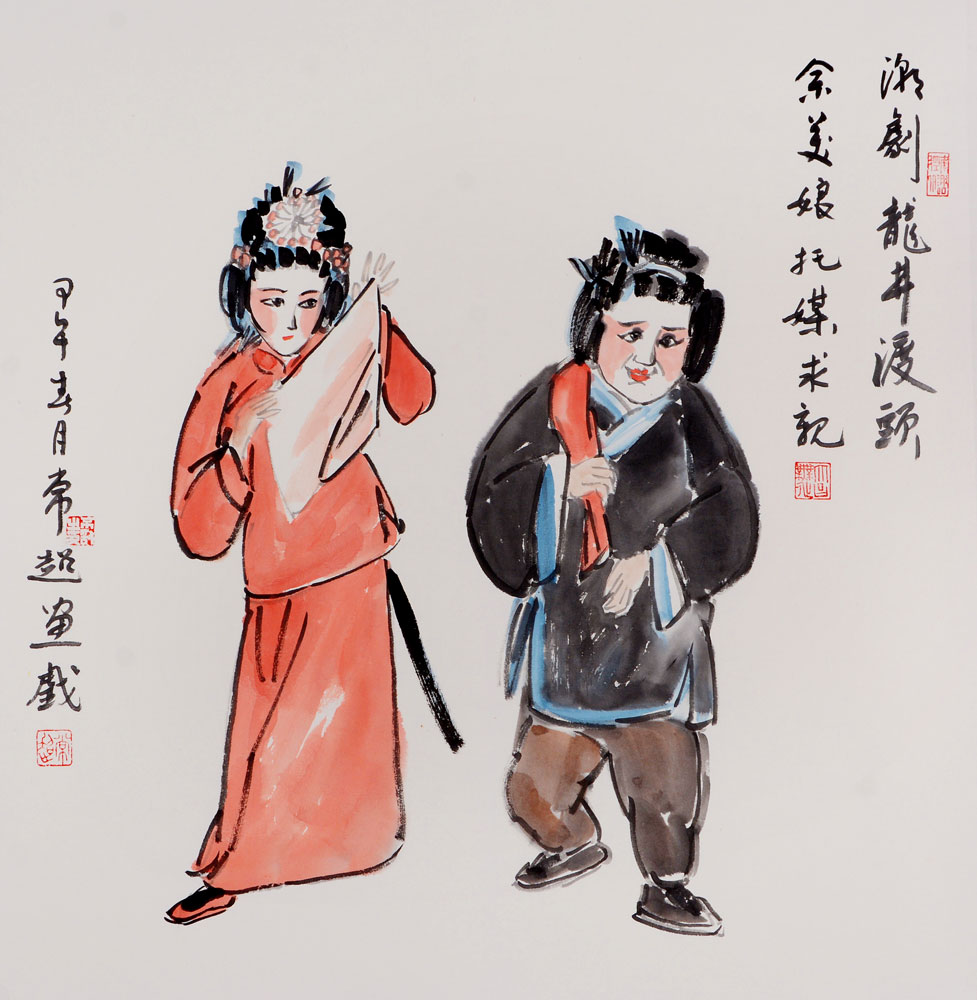 潮劇 龍井渡頭
余美娘托媒求親
甲午春月常超画戲